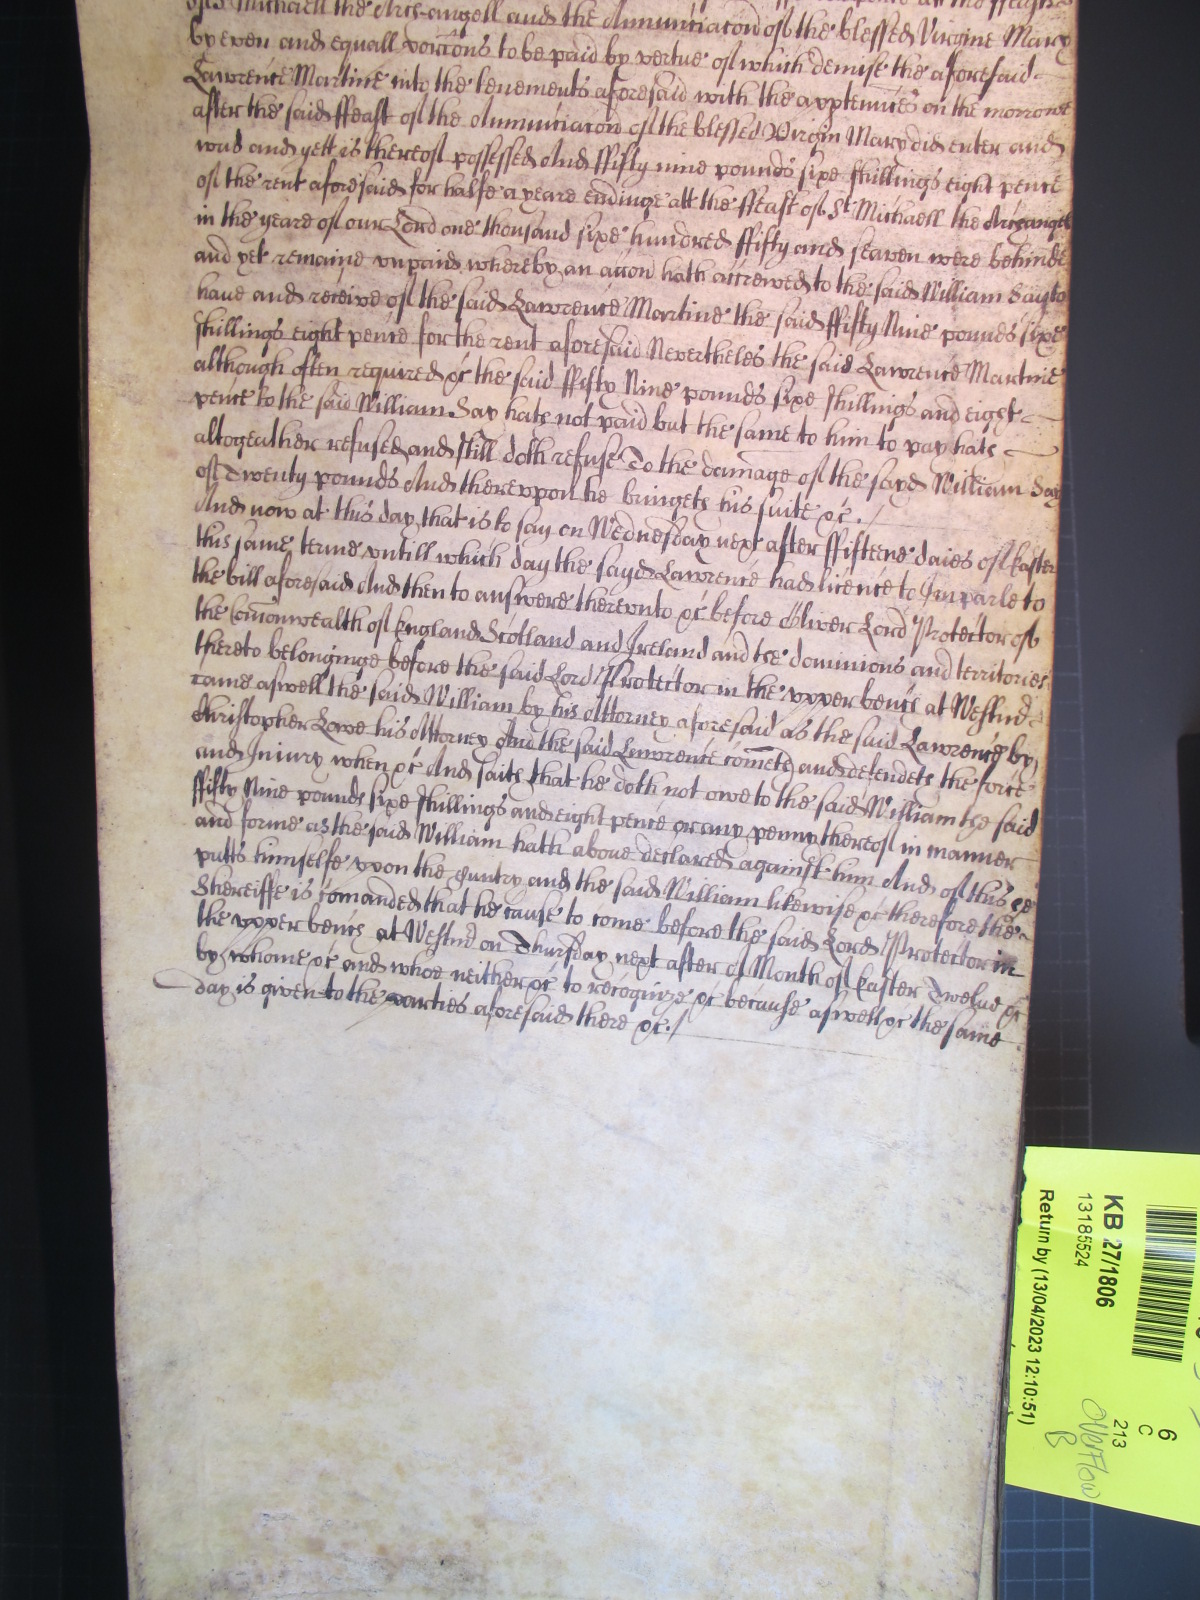 of St Michaell the Archangell and the Annunciacon of the blessed Virgine Mary
by even and equall porcons to be paid by vertue of which demise the aforesaid
Lawrence Martine into the tenements aforesaid with the apptennces on the morrowe
after the said ffeast of the Annunciacon of the blessed Virgin Mary did enter and
was and yett is thereof possessed And ffifty nine pounds sixe shillings eight pence
of the rent aforesaid for halfe a yeare endinge att the ffeast of St Michaell the Archangell
in the yeare of our Lord one thousand sixe hundred ffifty and seaven were behinde
and yet remaine unpaid whereby an accon hath accrewed to the said William Say to
have and receive of the said Lawrence Martine the said ffifty Nine pounds sixe
shillings eight pence for the rent aforesaid Neverthelesse the said Lawrence Martine
although often required &c the said ffifty Nine pounds sixe shillings and eight
pence to the said William Say hath not paid but the same to him to pay hath
altogeather refused and still doth refuse To the damage of the sayd William Say
of Twenty pounds And thereuppon he bringeth his suite &c.
And now at this day that is to say on Wednesday next after ffifteene daies of Easter
this same terme untill which day the sayd Lawrence had licence to Imparle to
the bill aforesaid And then to answere thereunto &c before Oliver Lord Protector of
the Comonwealth of England Scotland and Ireland and the dominions and territories
thereto belonginge before the said Lord Protector in the upper bench at Westmr
came aswell the said William by his Attorney aforesaid as the said Lawrence by
Christopher Lowe his Attorney And the said Lawrence cometh and defendeth the force
and Injury when &c And saith that he doth not owe to the said William the said
ffifty Nine pounds sixe shillings and eight pence or any penny thereof in manner
and forme as the said William hath above declared against him And of this he
putts himselfe upon the Cuntry and the said William likewise &c therefore the
Shereiffe is comanded that he cause to come before the said Lord Protector in
the upper bench at Westmr on Thursday next after of Month of Easter Twelve &c
by whome &c and whoe neither &c to recognize &c because aswell &c the same
day is given to the parties aforesaid there &c.
KB 27/1806
13185524
Return by (13/04/2023 12:10:51)
6
C
213
Overflow
B